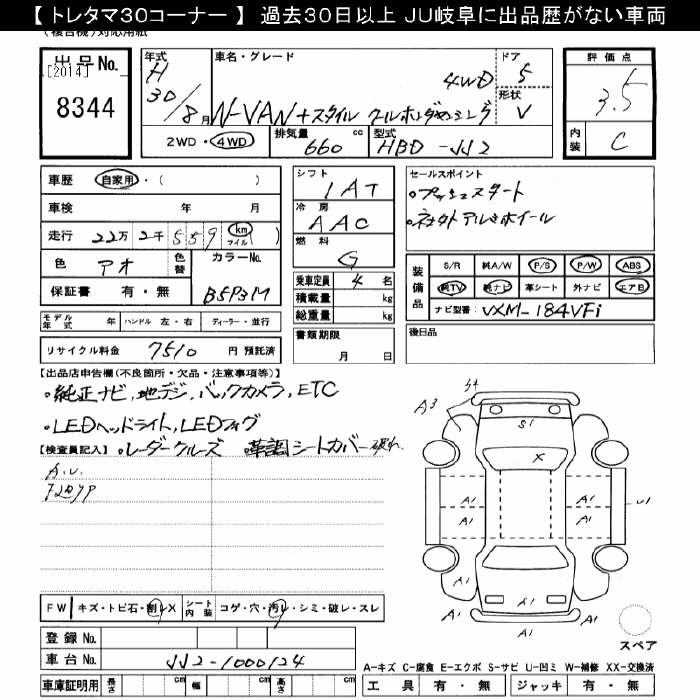 【 トレタマ30コーナー 】 過去30日以上 JU岐阜に出品歴がない車両
(複合機)対応用紙
出品No.
[2014]
8344
年式
H
30/8月
車名・グレード
4WD
N-VAN +スタイル クールホンダセンシング
ドア
5
形状
V
評価点
3.5
内装
C
2WD・4WD
排気量
660 cc
型式
HBD-JJ2
車歴 自家用・( )
車検 年 月
走行 22万 2千 559 km マイル ( )
色 アオ 色替
カラーNo.
B593M
保証書 有・無
シフト
1AT
冷房
AAC
燃料
G
乗車定員 4 名
積載量 kg
総重量 kg
セールスポイント
・プッシュスタート
・社外アルミホイール
装備品
S/R 純A/W P/S P/W ABS
純TV 純ナビ 革シート 外ナビ エアB
ナビ型番: VXM-184VFi
モデル年式 年 ハンドル 左・右 ディーラー・並行
リサイクル料金 7510 円 預託済
書類期限
月 日
後日品
【出品店申告欄(不良箇所・欠品・注意事項等)】
・純正ナビ,地デジ,バックカメラ,ETC
・LEDヘッドライト,LEDフォグ
【検査員記入】 ・レーダークルーズ ・革調シートカバー 破れ
A.U.
S4
A3
S1
X
A1 A1 A1 A1
A1 A1 A1 A1
U1
A1 A1
A1
FW キズ・トビ石・割レX
シート内装 コゲ・穴・汚レ・シミ・破レ・スレ
登録No.
車台No. JJ2-1000124
スペア
A-キズ C-腐食 E-エクボ S-サビ U-凹ミ W-補修 XX-交換済
車庫証明用 長さ cm 幅 cm 高さ cm
工具 有・無 ジャッキ 有・無